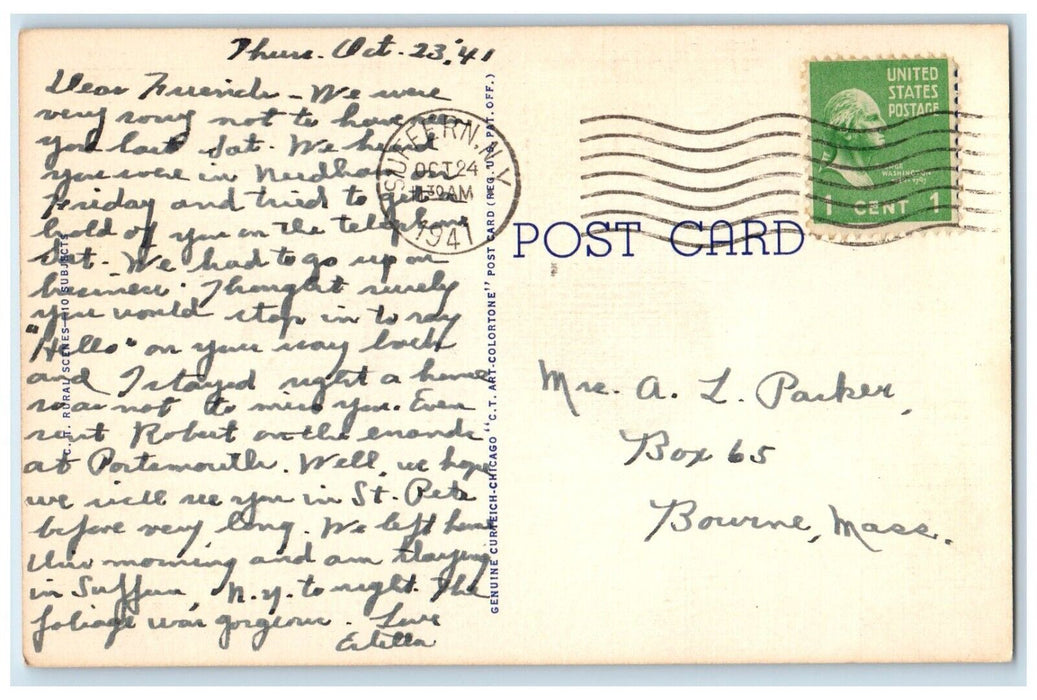 Thurs. Oct. 23, '41
Dear Friends - We were
very sorry not to have seen
you last Sat. We heard
you were in Needham on
Friday and tried to get
hold of you on the telephone
Sat. We had to go up on
business. Thought surely
you would stop in to say
"Hello" on your way back
and I stayed right a home
so as not to miss you. Even
sent Robert on the errands
at Portsmouth. Well, we hope
we will see you in St. Pete
before very long. We left home
this morning and am staying
in Suffern, N.Y. to night. The
foliage was gorgeous. Love
Estella
C.T. RURAL SCENES—10 SUBJECTS
GENUINE CURTEICH-CHICAGO "C.T. ART-COLORTONE" POST CARD (REG. U.S. PAT. OFF.)
SUFFERN, N.Y.
OCT 24
30 AM
1941
UNITED
STATES
POSTAGE
WASHINGTON
1 CENT 1
POST CARD
Mrs. A. L. Parker,
Box 65
Bourne, Mass.